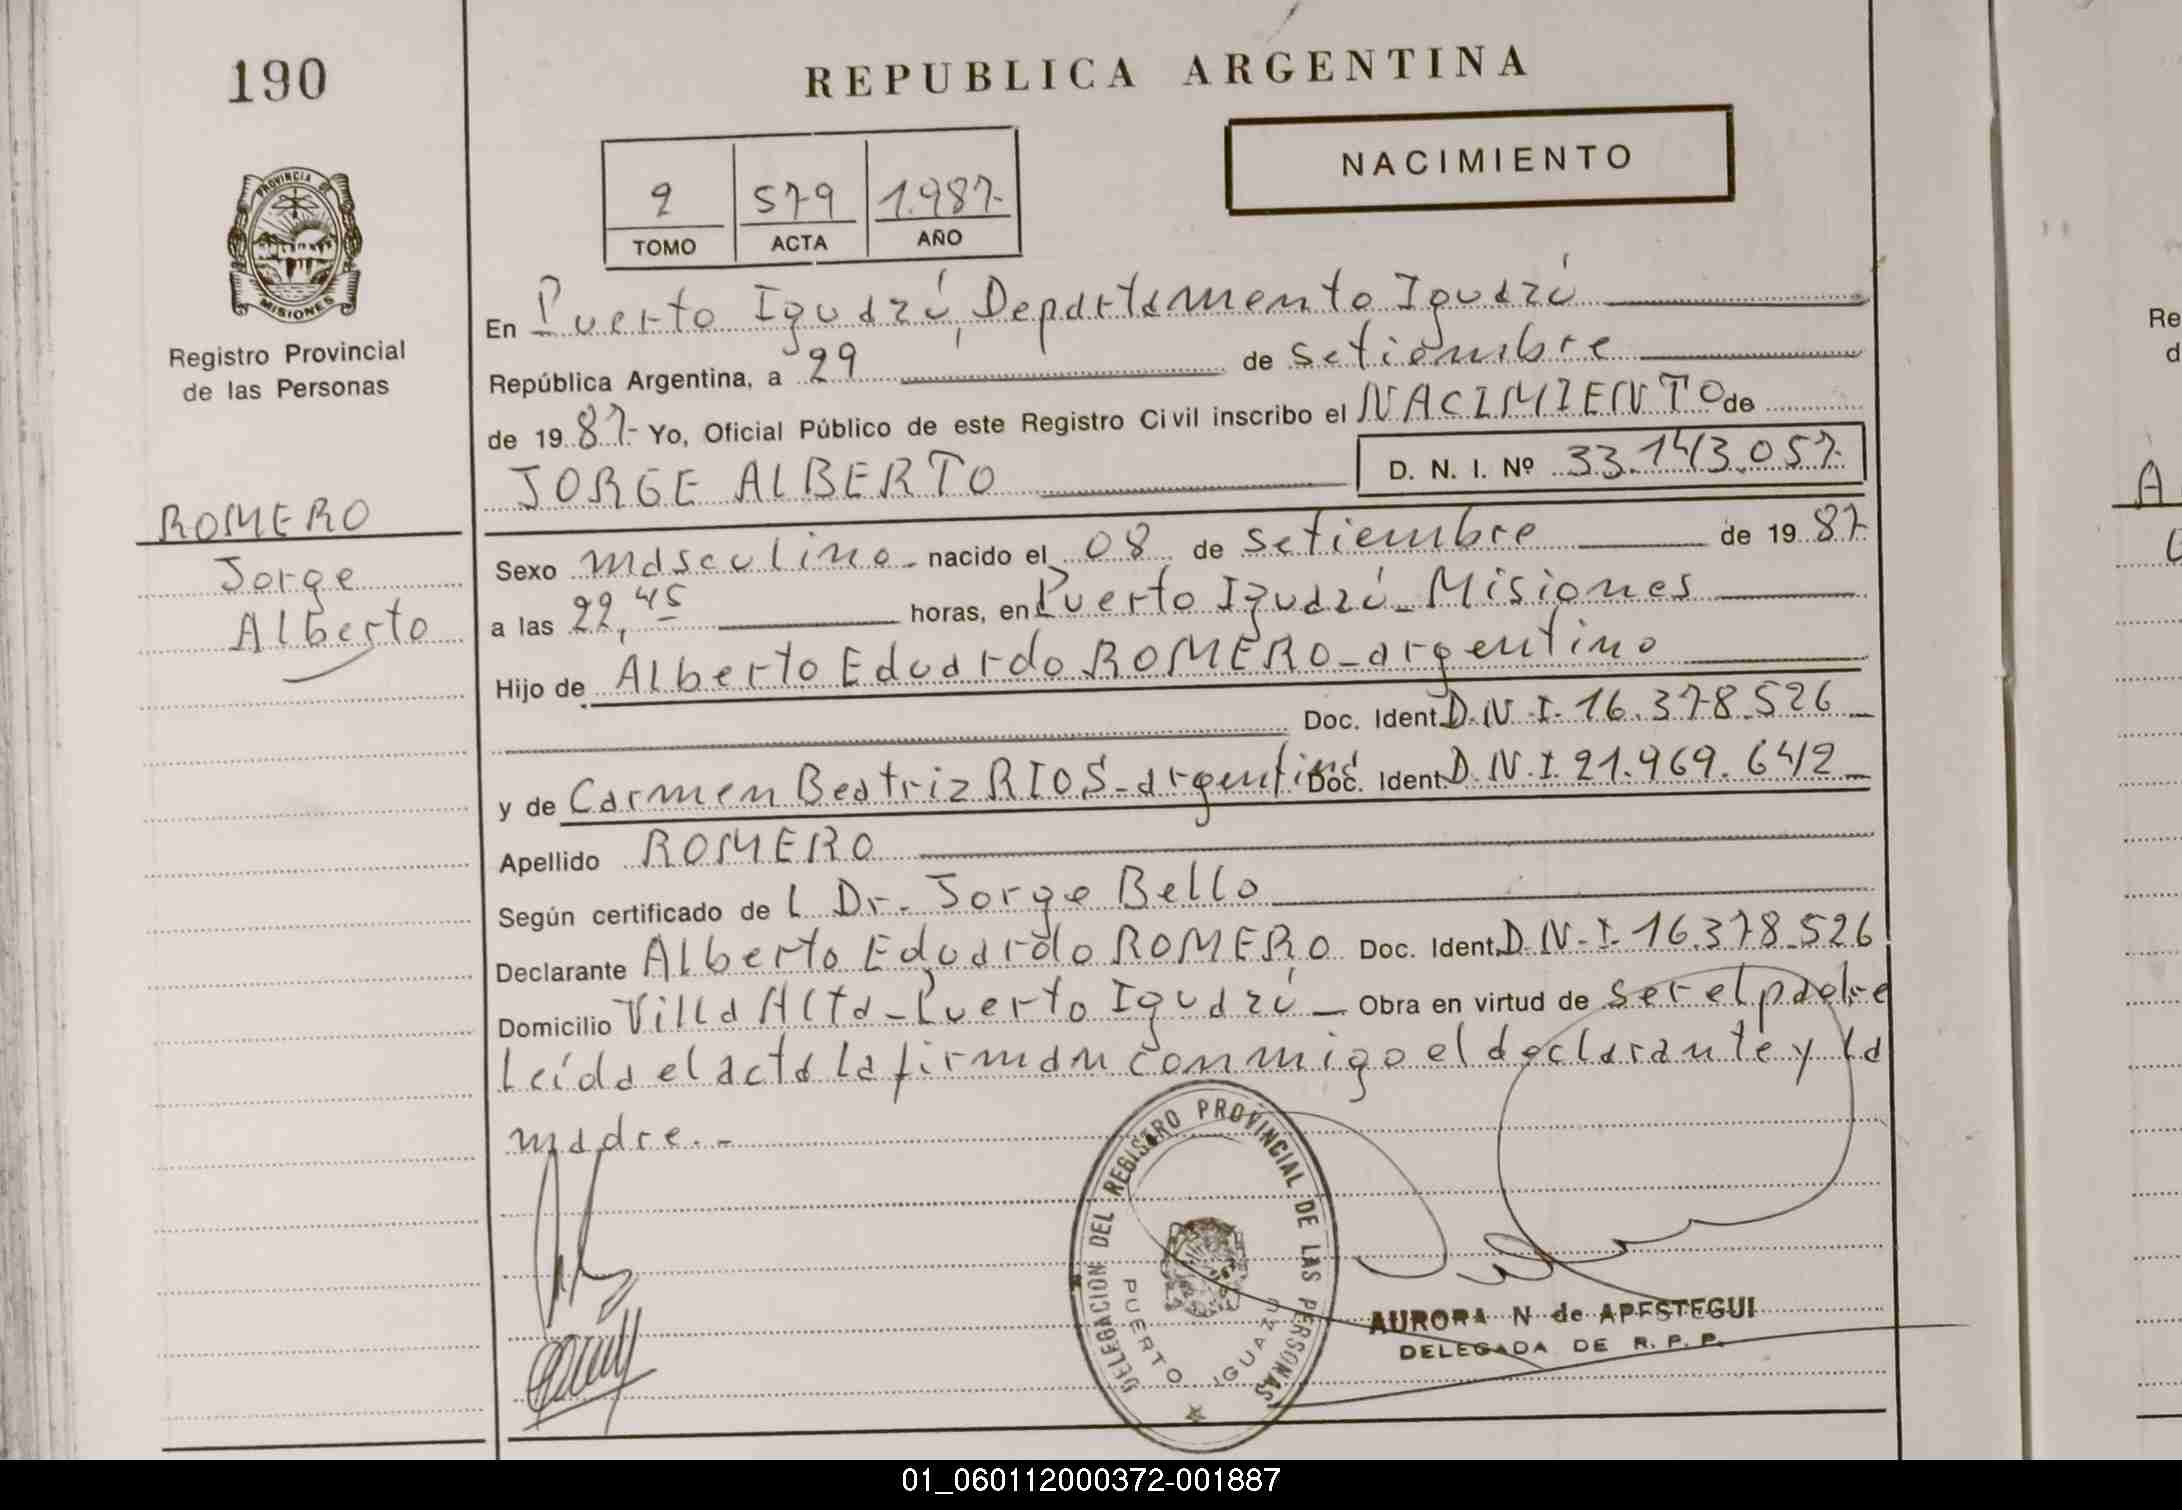 190
REPUBLICA ARGENTINA
NACIMIENTO
2 579 1.987-
TOMO ACTA AÑO
PROVINCIA DE
MISIONES
Registro Provincial
de las Personas
ROMERO
Jorge
Alberto
En Puerto Iguazú, Departamento Iguazú
República Argentina, a 29 de setiembre
de 1987- Yo, Oficial Público de este Registro Civil inscribo el NACIMIENTO de
JORGE ALBERTO D. N. I. Nº 33.143.057-
Sexo masculino - nacido el 08 de setiembre de 1987-
a las 22,45 horas, en Puerto Iguazú - Misiones
Hijo de Alberto Eduardo ROMERO - argentino
Doc. Ident. D.N.I. 16.378.526
y de Carmen Beatriz RIOS - argentina Doc. Ident. D.N.I. 21.969.642
Apellido ROMERO
Según certificado de l Dr. Jorge Bello
Declarante Alberto Eduardo ROMERO Doc. Ident. D.N.I. 16.378.526
Domicilio Villa Alta - Puerto Iguazú - Obra en virtud de ser el padre
Leída el acta la firman conmigo el declarante y la
madre.-
DELEGACION DEL REGISTRO PROVINCIAL DE LAS PERSONAS
PUERTO IGUAZU
AURORA N de APESTEGUI
DELEGADA DE R. P. P.
Re
d
A
01_060112000372-001887